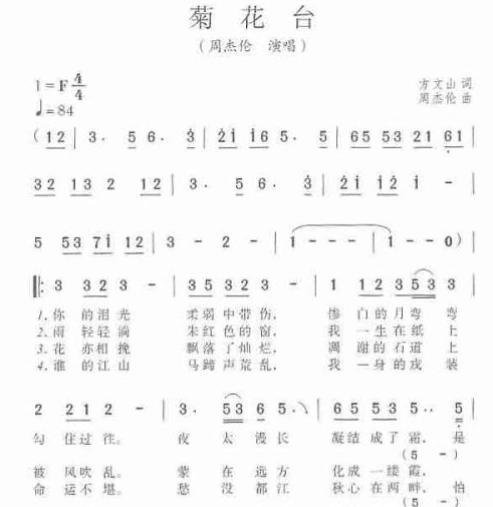 菊花台
(周杰伦 演唱)
1=F 4/4 方文山 词
♩=84 周杰伦 曲
(12 | 3. 5 6. 3 | 2i i65. 5 | 65 53 21 61 |
32 13 2 12 | 3. 5 6. 3 | 2i i2 i - |
5 53 7i 12 | 3 - 2 - | 1 - - - | 1 - - 0) |
‖: 3 32 3 - | 35 32 3 - | 1 12 353 3 |
1.你 的泪光 柔弱中带伤, 惨 白的月弯 弯
2.雨 轻轻淌 朱红色的窗, 我 一生在纸 上
3.花 亦相挽 飘落了灿烂, 凋 谢的石道 上
4.谁 的江山 马蹄声荒乱, 我 一身的戎 装
2 21 2 - | 3. 53 6 5. | 65 53 5.. 5 |
勾 住过往。 夜 太 漫长 凝结成了霜, 是
(5 -)
被 风吹乱。 蒙 在 远方 化成一缕霞,
命 运不堪。 愁 没 都江 秋心在两畔, 怕
(5 -)